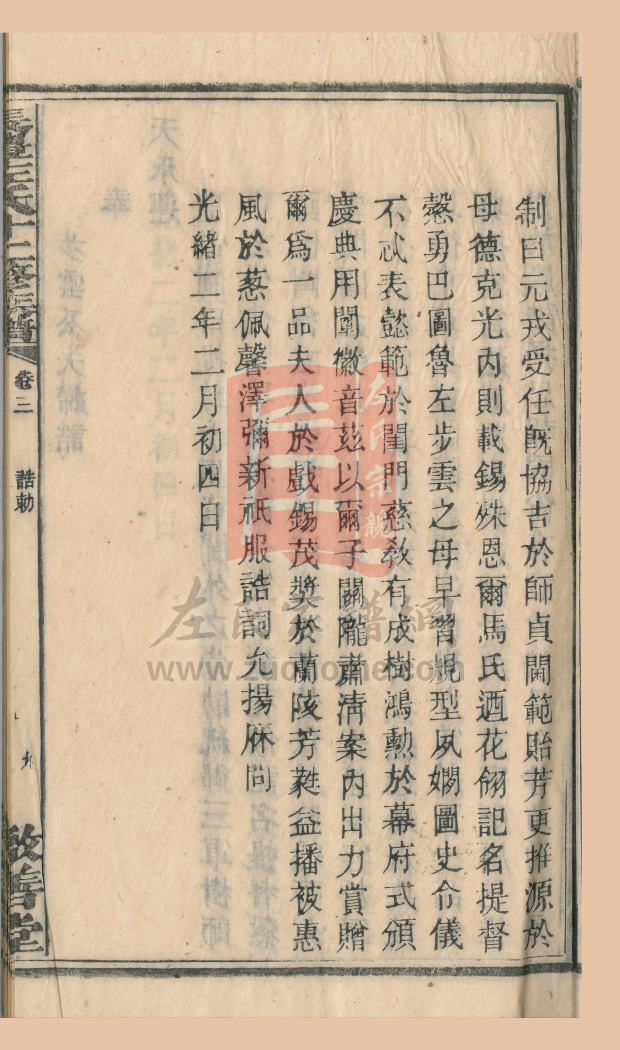 制曰元戎受任旣協吉於師貞閫範貽芳更推源於
母德克光內則載錫殊恩爾馬氏迺花翎記名提督
慤勇巴圖魯左步雲之母早習規型夙嫺圖史令儀
不忒表懿範於閨門慈敎有成樹鴻勳於幕府式頒
慶典用闡徽音茲以爾子關隴肅淸案內出力賞贈
爾爲一品夫人於戲錫茂奬於蘭陵芳蕤益播被惠
風於蔥佩馨澤彌新祇服誥詞允揚庥問
光緒二年二月初四日
左氏十二修族譜
卷三
誥勅
九
敬善堂
左氏宗親
www.zuohome.com